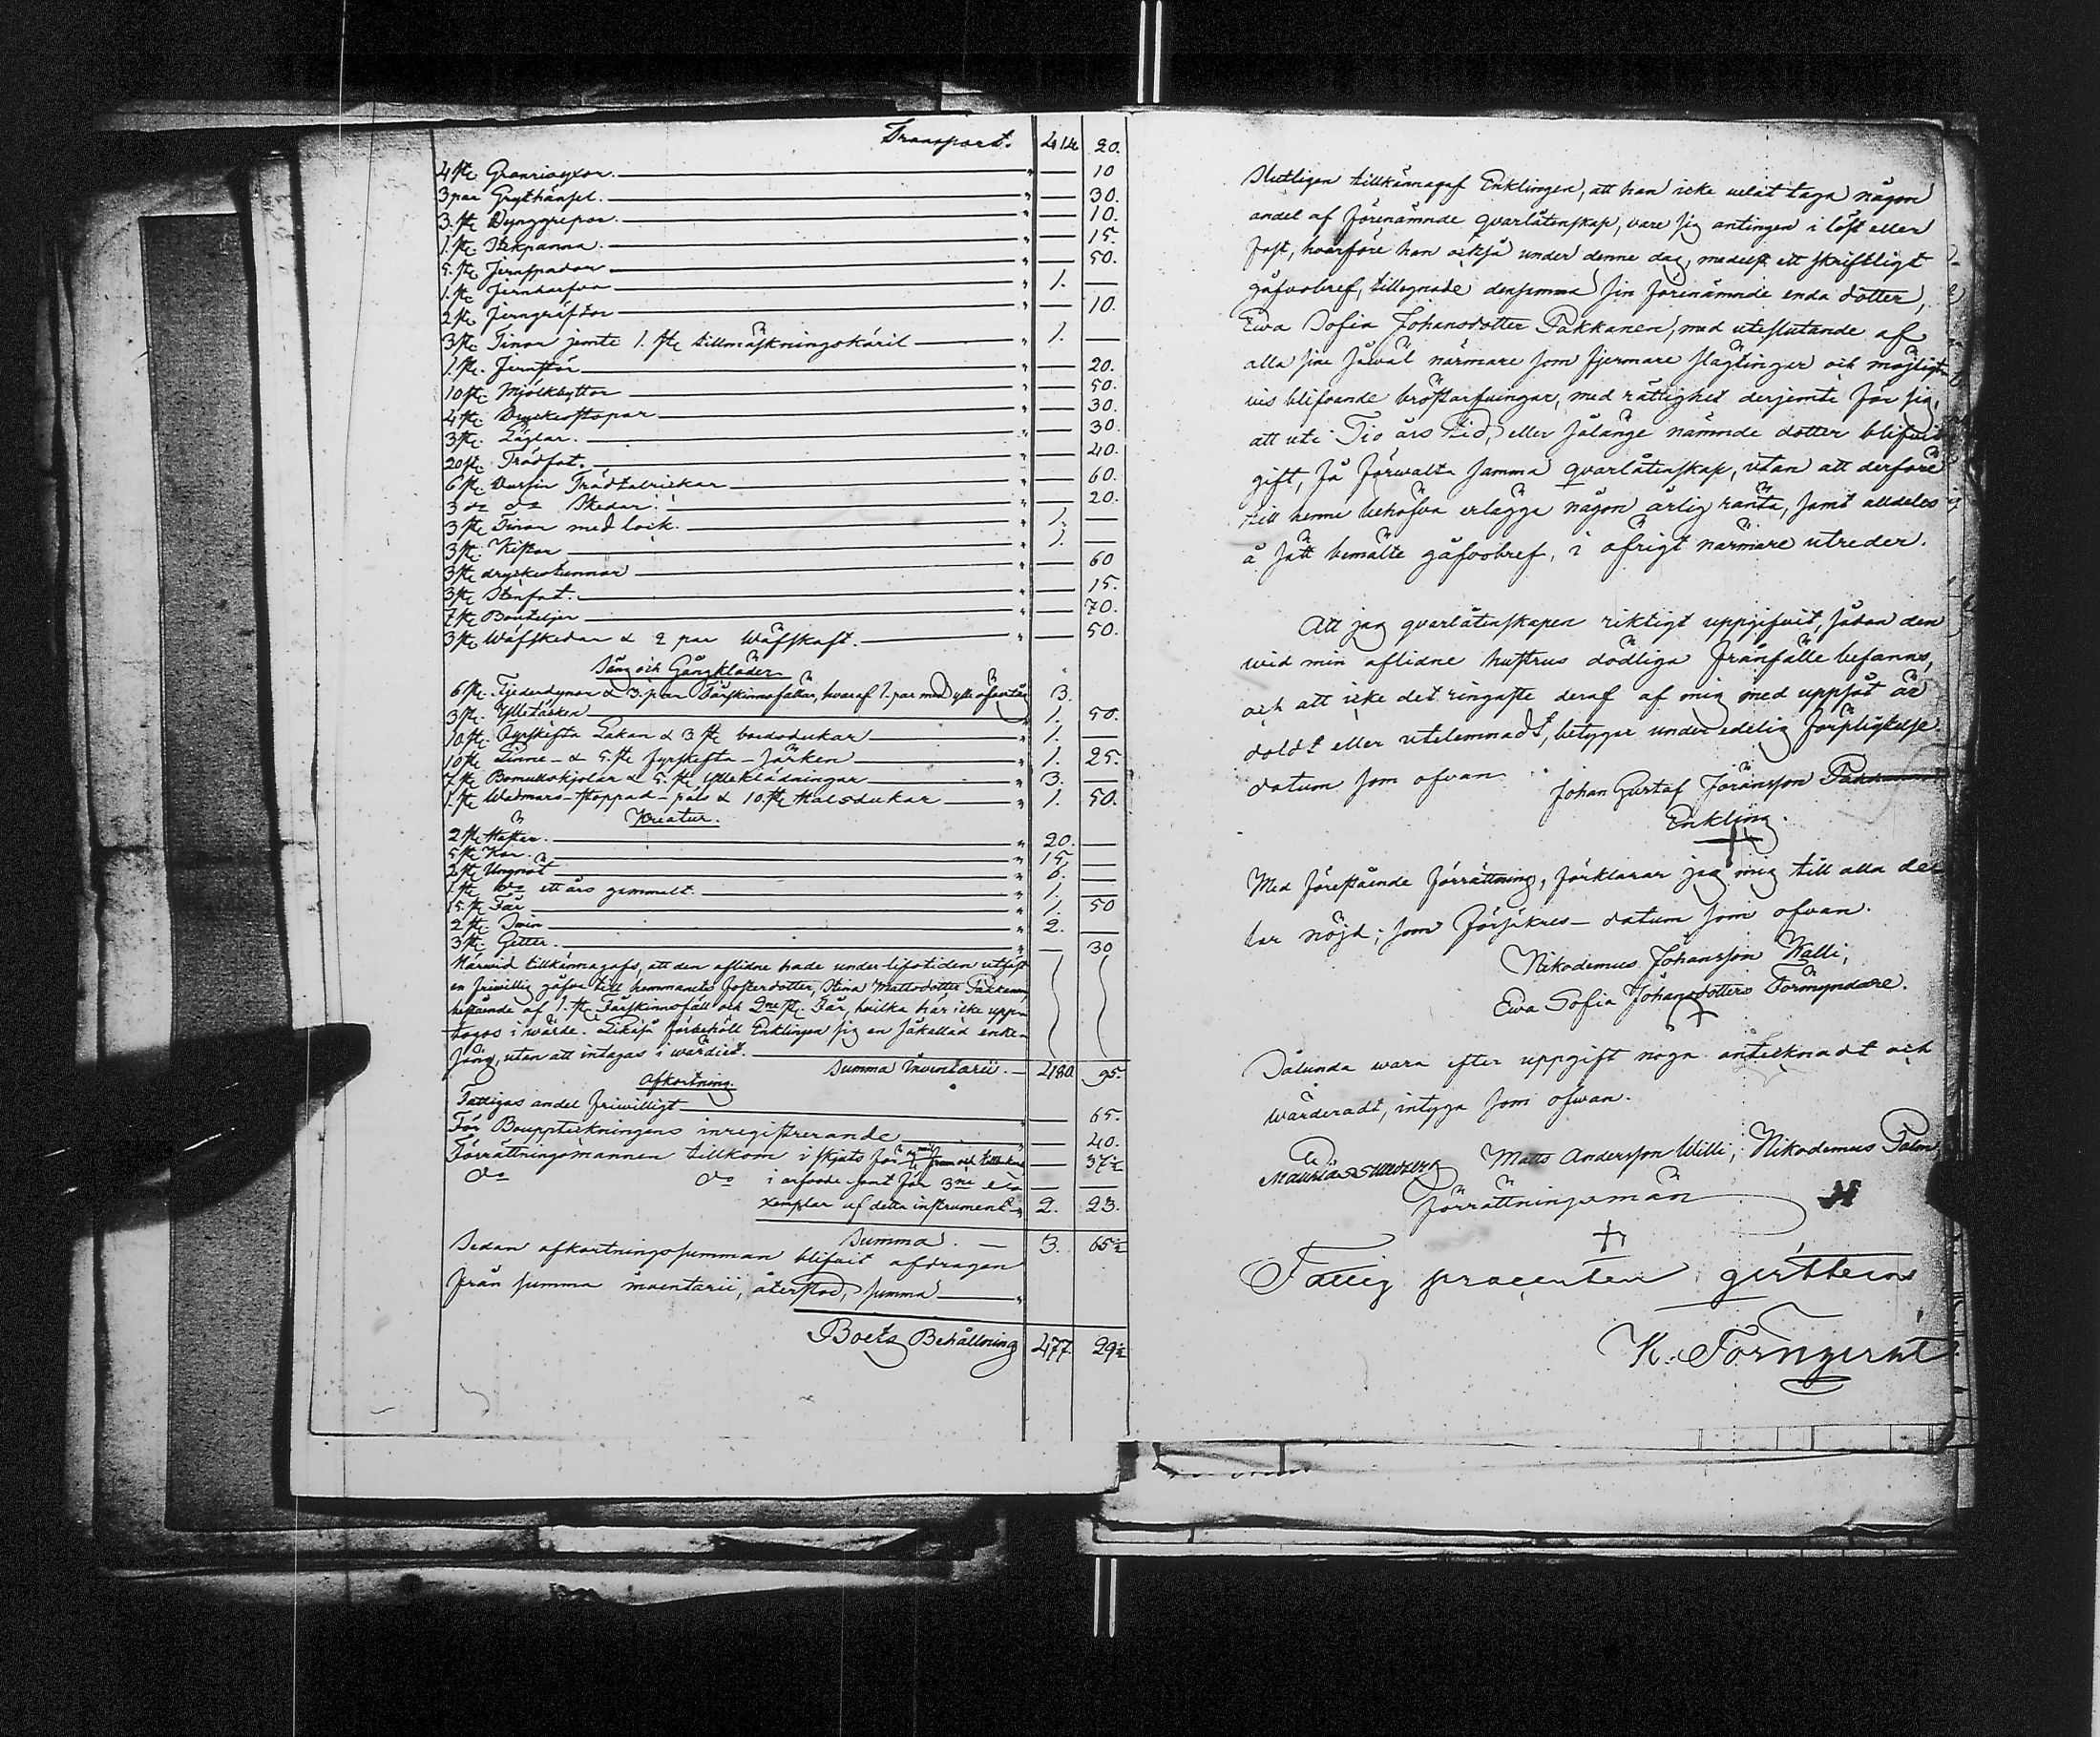 Transport. 414 20.
4 st: Granriayxor. " — 10
3 par Grythänsel. " — 30.
3. st: Dynggrepar. " — 10.
1. st: Stekpanna. " — 15.
5. st: Jernspadar " — 50.
1. st: Jernharfva " 1. —
2 st: Jerngräftor " — 10.
3 st: Tinor jemte 1. st: tillmäskningskäril " 1. —
1. st: Jernstör " — 20.
10 st: Mjölkbyttor " — 50.
4 st: Dryckesstopar " — 30.
3 st: Läglar. " — 30.
20 st: Trädfat. " — 40.
6 st: Dussin Trädtalrickar " — 60.
3 do do Skedar. " — 20.
3 st: Tinor med lock. " 1. —
3 st: Kistor " 1. —
3 st: dryckestunnor " — 60
3 st: Stenfat. " — 15.
7 st: Bouteljer " — 70.
3 st: Wäfskedar & 2 par Wäfskaft. " — 50.
Säng och Gångkläder
6 st: Fjederdynor & 3. par Fårskinnsfällar, hvaraf 1. par med ylle " 3.
3 st: Ylletäcken " 1. 50.
10 st: Fyrskifta Lakan & 3 st: bordsdukar " 1. —
10 st: Linne- & 5. st: fyrskifta- särken " 1. 25.
7 st: Bomullskjolar & 5. st: ylleklädningar " 3. —
1. st: Wadmars-stoppad-päls & 10. st: Halsdukar " 1. 50.
Kreatur.
2 st: Hästar. " 20. —
5 st: Kor. " 15. —
2 st: Ungnöt " 6. —
1 st: do ett års gammalt. " 1. —
5. st: Får " 1. 50
2 st: Swin " 2. —
3 st: Getter. " — 30
Härwid tillkännagafs, att den aflidne hade under lifstiden utfäst
en friwillig gåfva till hemmanets fosterdotter, Stina Mattsdotter Pakkanen,
bestående af 1. st: Fårskinnsfäll och 2ne st: Får, hvilka här icke upp-
togos i wärde. Likaså förbehöll Enklingen sig en såkallad enke-
säng, utan att intagas i wärdiet. Summa Inventarii. — 480 95.
Afkortning.
Fattigas andel friwilligt " — 65.
För Bouppteckningens inregistrerande " — 40.
Förrättningsmännen tillkom i skjuts för fram och tillbaka — 37½
do do i arfvode samt för 3ne — —
xemplar af detta instrument " 2. 23.
Summa. — 3. 65½
Sedan afkortningssumman blifvit afdragen
från summa inventarii, återstod, summa "
Boets Behållning 477. 29½
Slutligen tillkännagaf Enklingen, att han icke velat taga någon
andel af förenämnde qvarlåtenskap, vare sig antingen i löst eller
fast, hvarföre han också under denne dag, medelst ett skriftligt
gåfvobref, tillegnade densamma sin förenämnde enda dotter,
Ewa Sofia Johansdotter Pakkanen, med uteslutande af
alla sine såwäl närmare som fjermare slägtingar och möjligt-
vis blifvande bröstarfvingar, med rättighet derjemte för sig,
att uti Tio års tid, eller sålänge nämnde dotter blifvit
gift, få förwalta samma qvarlåtenskap, utan att derföre
till henne behöfva erlägga någon årlig ränta, samt alldeles
å sätt bemälte gåfvobref, i öfrigt närmare utreder.
Att jag qvarlåtenskapen riktigt uppgifvit, sådan den
wid min aflidne hustrus dödliga frånfälle befanns,
och att icke det ringaste deraf af mig med uppsåt är
doldt eller utelemnadt, betygar under edelig förpligtelse.
datum som ofvan. Johan Gustaf Göransson Pakkanen
Enkling.
Med förestående förrättning, förklarar jag mig till alla de-
lar nöjd; som försäkras- datum som ofvan.
Nikodemus Johansson Kalli,
Ewa Sofia Johansdotters Förmyndare.
Sålunda wara efter uppgift noga antecknadt och
wärderadt, intyga som ofwan.
Matts Andersson Willi; Nikodemus
Förrättningsmän
Fattig procenten qvitteras
K. Törnqvist